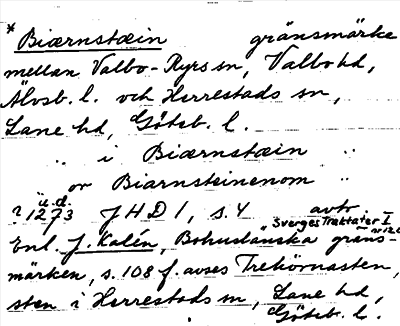 * Biærnstæin gränsmärke
mellan Valbo-Ryrs sn, Valbo hd,
Älvsb. l. och Herrestads sn,
Lane hd, Göteb. l.
„ i Biærnstæin „
„ or Biarnsteinenom „
u.d.
? 1273 JHD 1, s. 4 avtr.
Sverges Traktater I
nr 126
Enl. J. Kalén, Bohuslänska gräns-
märken, s. 108 f. avses Trehörnasten,
sten i Herrestads sn, Lane hd,
Göteb. l.